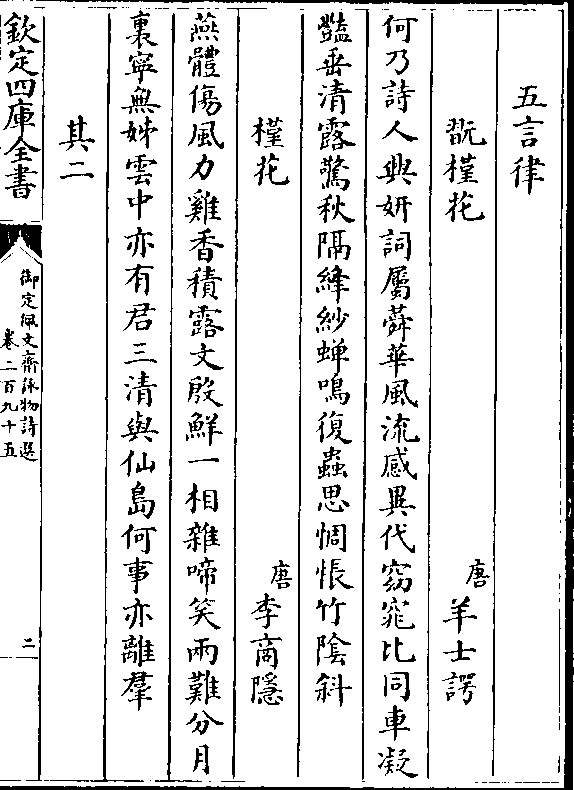 五言律
翫槿花 唐 羊士諤
何乃詩人興妍詞屬蕣華風流感異代窈窕比同車凝
豔垂清露驚秋隔絳紗蝉鳴復蟲思惆悵竹陰斜
槿花 唐 李商隱
燕體傷風力雞香積露文殷鮮一相雜啼笑兩難分月
裏寧無姊雲中亦有君三清與仙島何事亦離羣
其二
欽定四庫全書
御定佩文齋詠物詩選
卷二百九十五
二